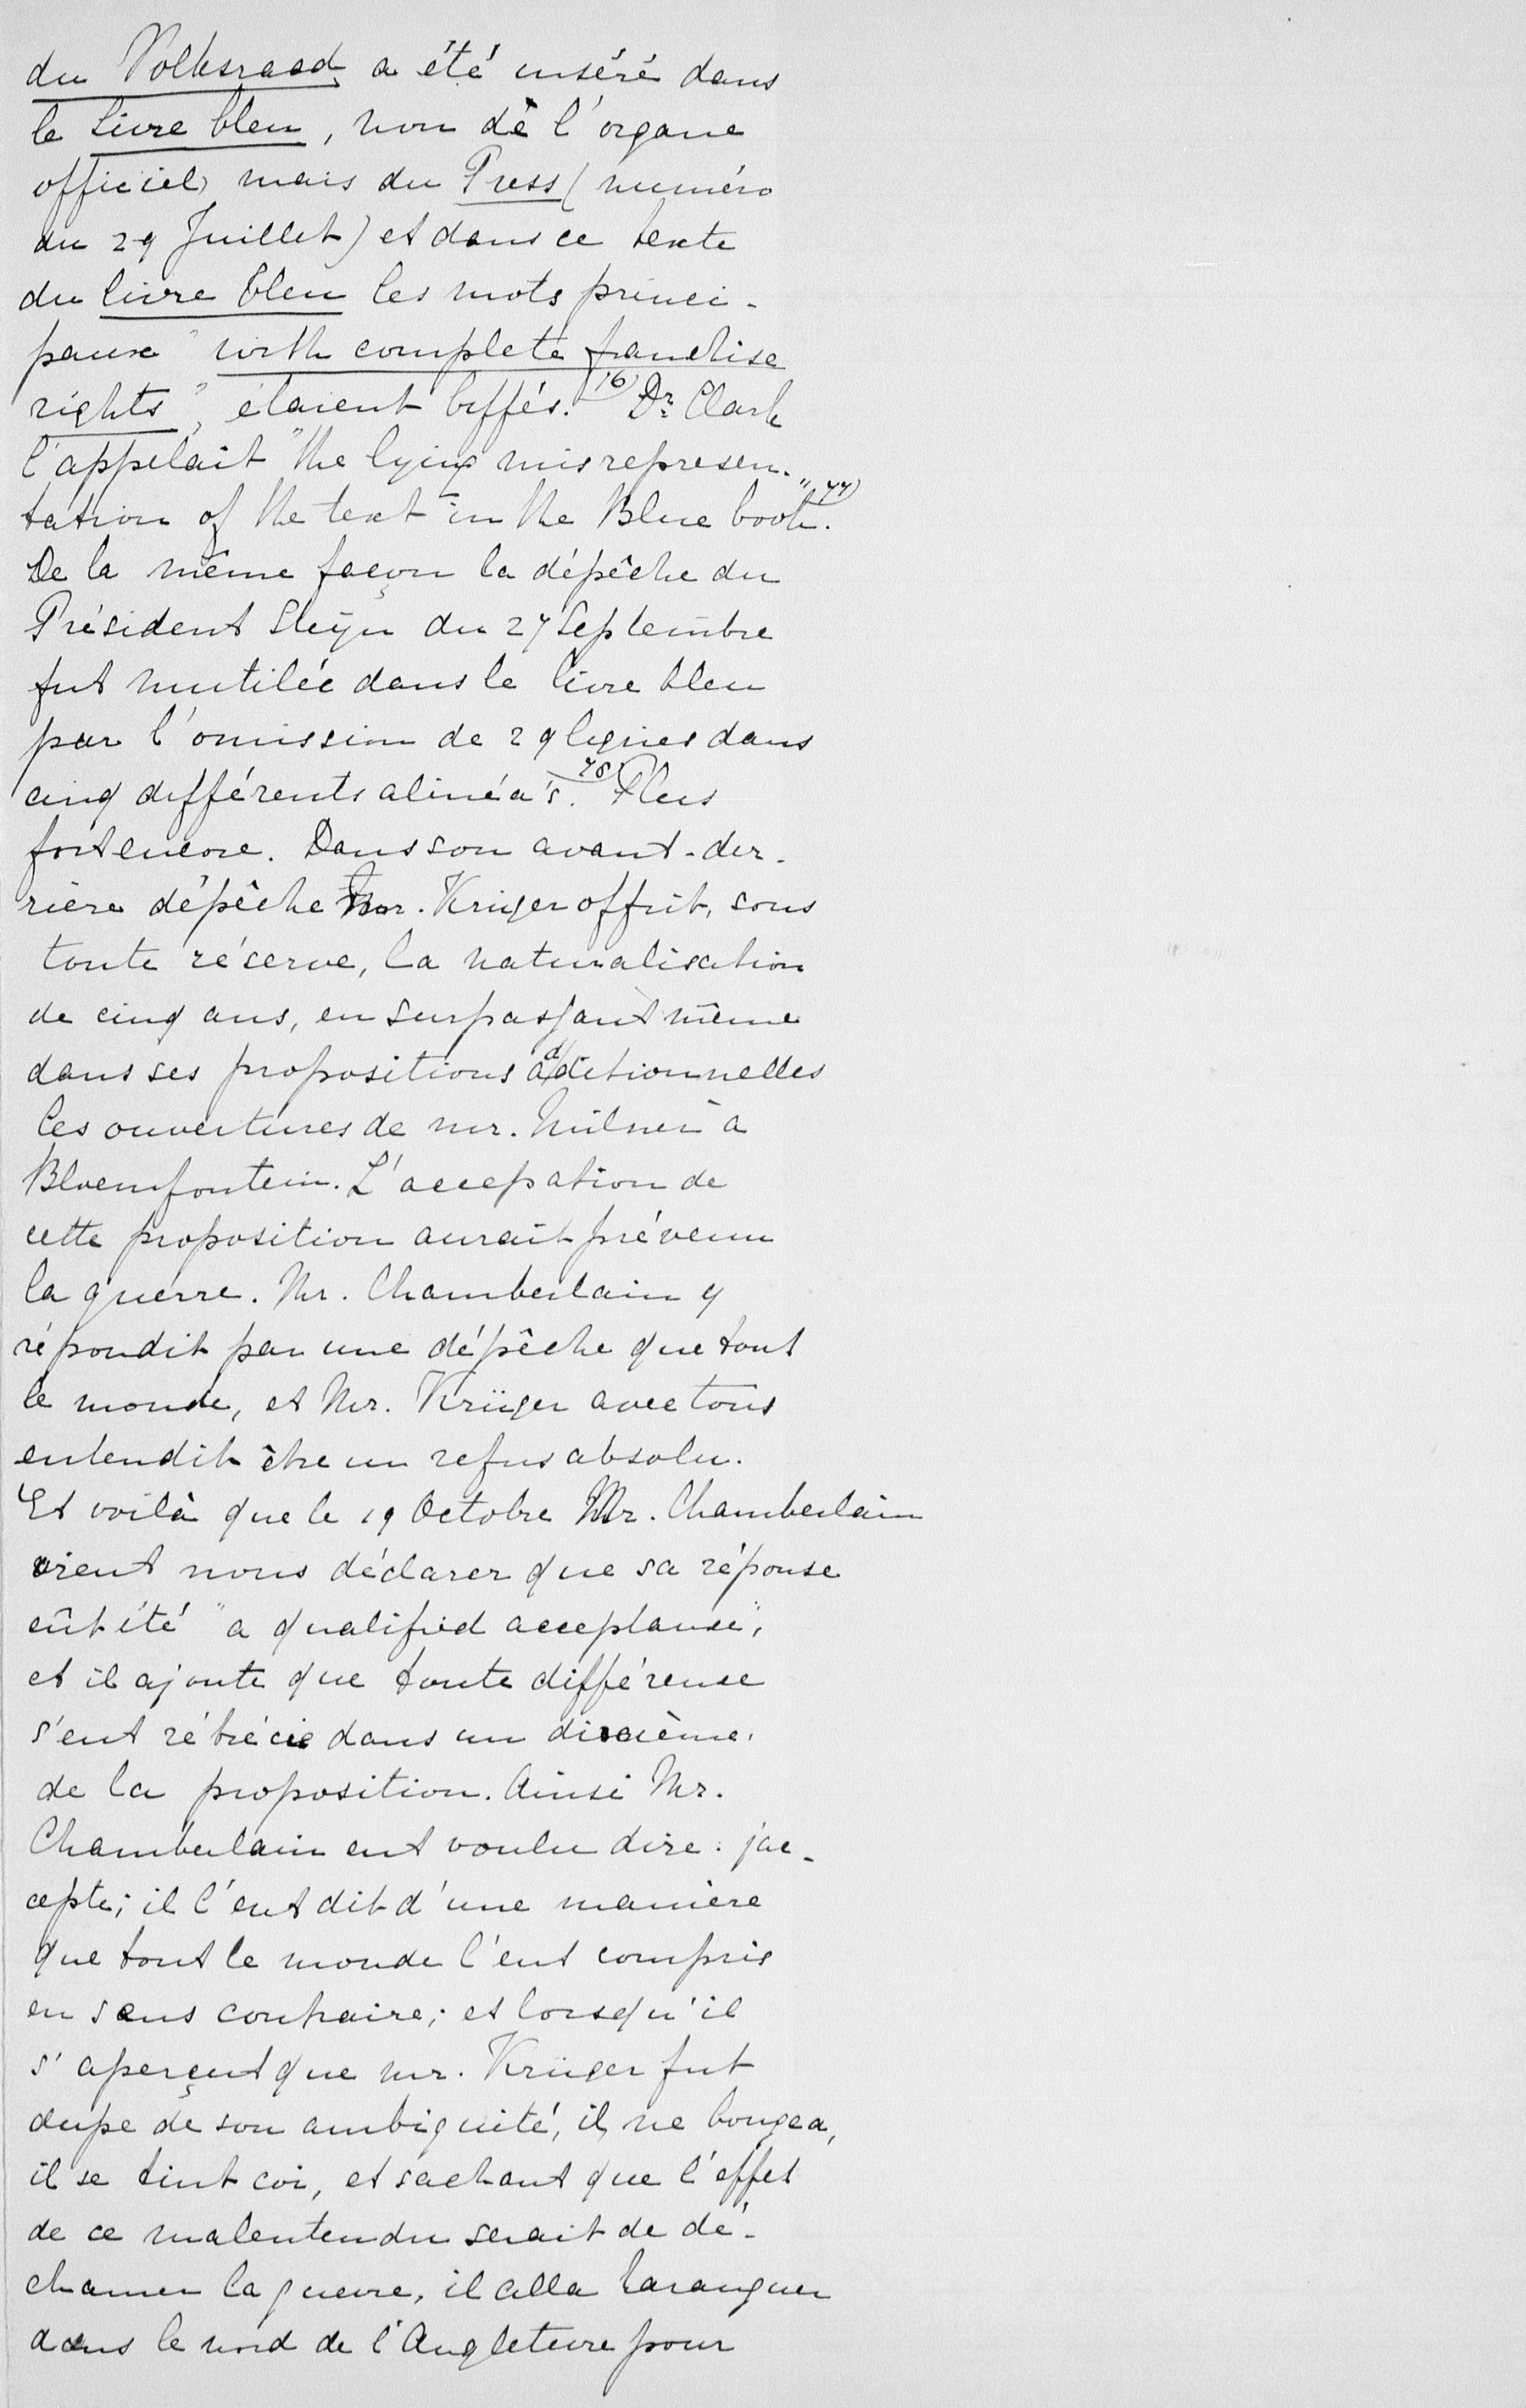 du Volksraad a été inséré dans
le livre bleu, non de l'organe
officiel mais du Press (numéro
du 29 Juillet) et dans ce texte
du livre bleu les mots princi-
paux "with complete franchise
rights", étaient biffés. 76) Dr. Clark
l'appelait "the lying misrepresen-
tation of the text in the Blue book." 77)
De la même façon la dépêche du
Président Steijn du 27 Septembre
fut mutilée dans le livre bleu
par l'omission de 29 lignes dans
cinq différents alinéa's. 78) Plus
fort encore. Dans son avant-der-
rière dépêche Mr. Krüger offrit, sous
toute réserve, la naturalisation
de cinq ans, en surpassant même
dans ses propositions additionnelles
les ouvertures de mr. Milner à
Bloemfontein. L'accepation de
cette proposition aurait prévenu
la guerre. Mr. Chamberlain y
répondit par une dépêche que tout
le monde, et Mr. Krüger avec tous
entendit être un refus absolu.
Et voilà que le 19 Octobre Mr. Chamberlain
vient nous déclarer que sa réponse
eût été "a qualified acceptance",
et il ajoute que toute différence
s'eut rétrécie dans un dixième
de la proposition. Ainsi Mr.
Chamberlain eut voulu dire: j'ac-
cepte; il l'eut dit d'une manière
que tout le monde l'eut compris
en sens contraire; et lorsqu'il
s'aperçut que mr. Krüger fut
dupe de son ambiguité, il ne bougea,
il se tint coi, et sachant que l'effet
de ce malentendu serait de dé-
chainer la guerre, il alla haranguer
dans le nord de l'Angleterre pour